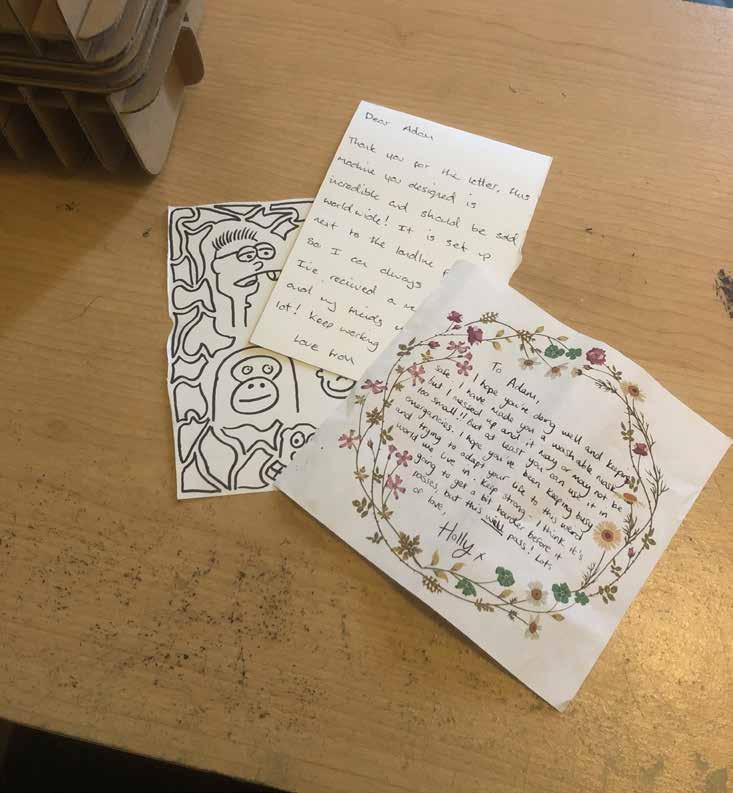 Dear Adam
Thank you for the letter, this
machine you designed is
incredible and should be sold
worldwide! It is set up
next to the landline
So I can always
I've recived a
and my friends
lot! Keep working
Love from
To Adam,
I hope you're doing well and keeping
safe. I have made you a washable mask
but I messed up and it may or may not be
too small!! But at least you can use it in
emergancies. I hope you've been keeping busy
and trying to adapt your life to this weird
world we live in. Keep strong - I think it's
going to get a bit harder before it
passes but this will pass! Lots
of love,
Holly x